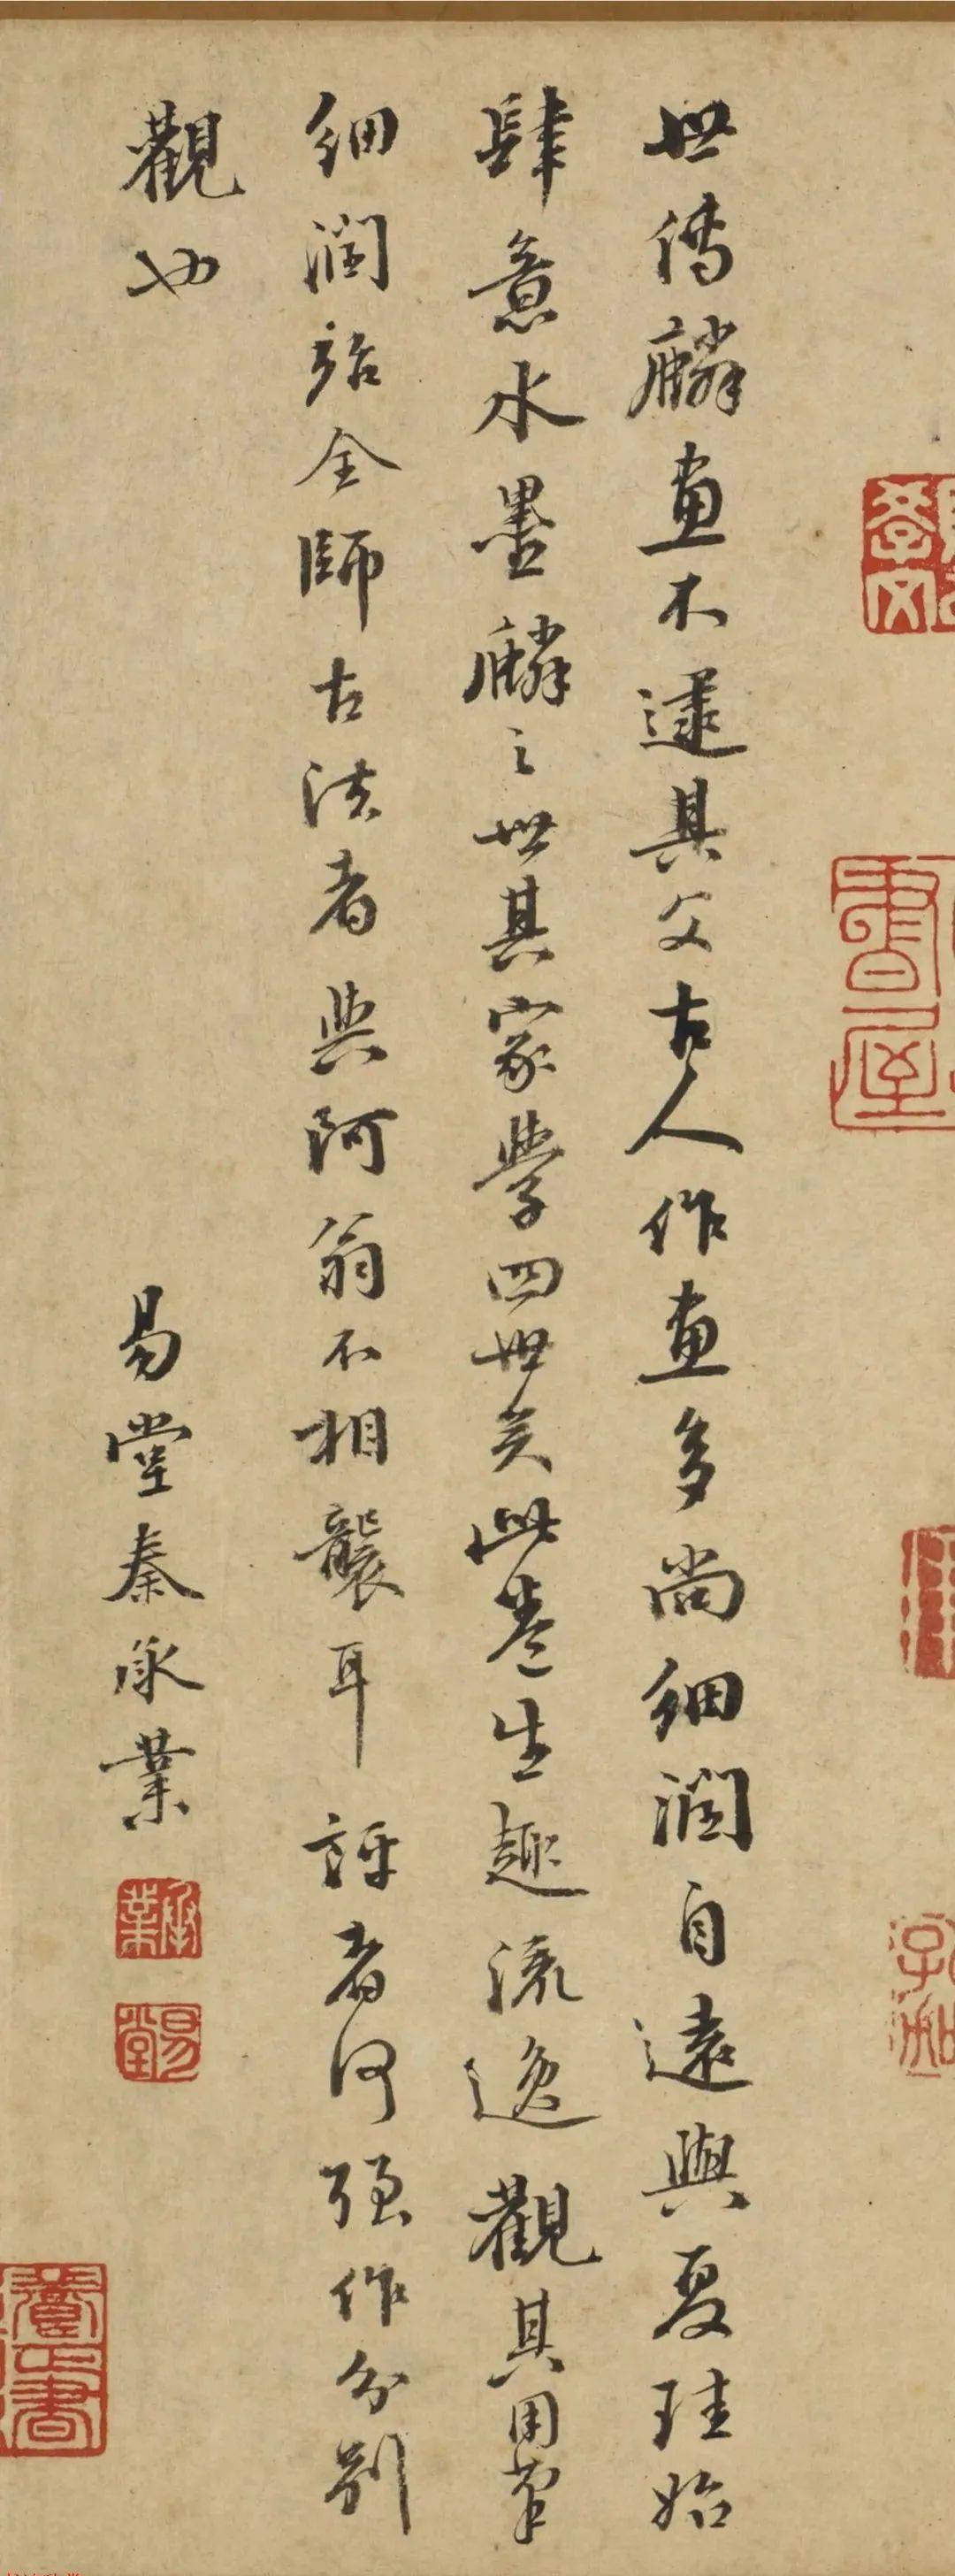 世傳麟畫不逮其父古人作畫多尚細潤自遠與夏珪始
肆意水墨麟之世其家學四世矣此卷生趣流逸觀其用筆
細潤殆全師古法者與阿翁不相襲耳評者何强作分別
觀也
易堂秦承業
承業
易堂